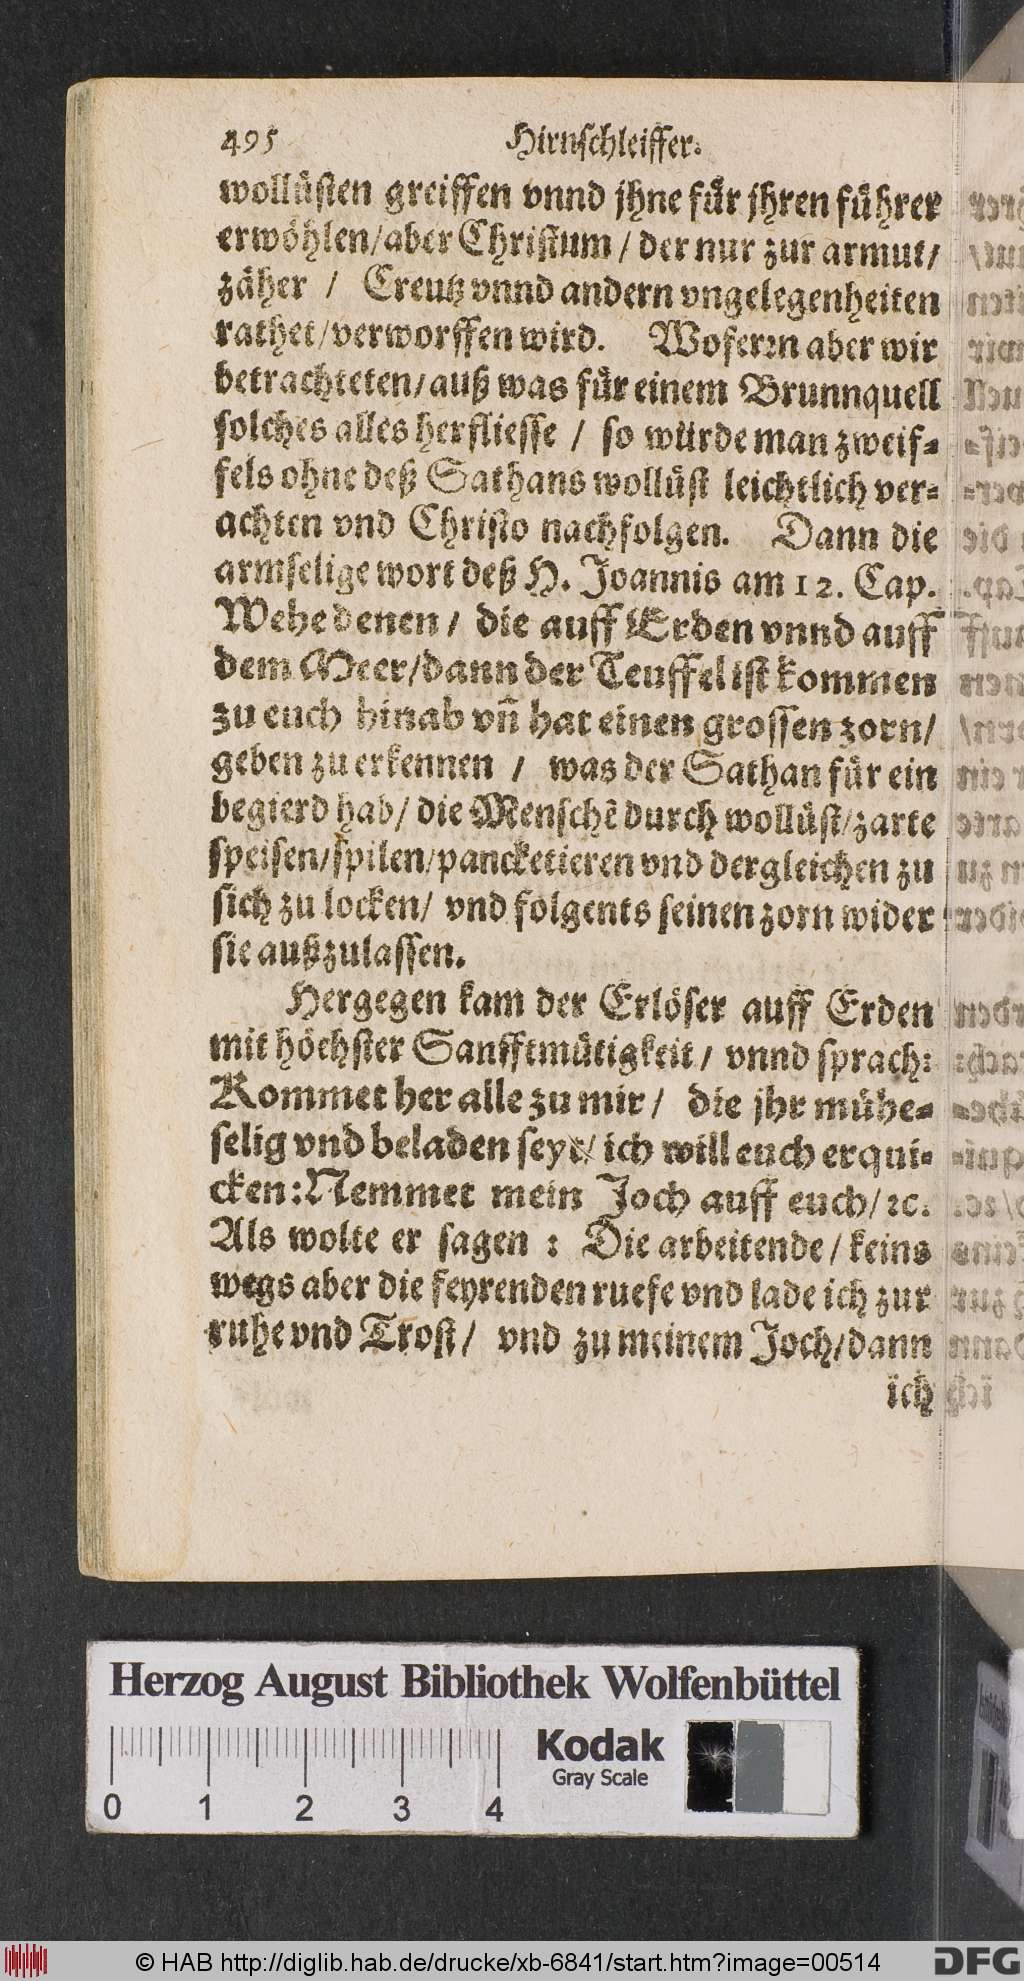 495 Hirnschleiffer.
wollüsten greiffen vnnd jhne für jhren führer
erwöhlen/aber Christum / der nur zur armut/
zäher / Creutz vnnd andern vngelegenheiten
rathet/verworffen wird. Woferꝛn aber wir
betrachteten/auß was für einem Brunnquell
solches alles herfliesse / so würde man zweif-
fels ohne deß Sathans wollüst leichtlich ver-
achten vnd Christo nachfolgen. Dann die
armselige wort deß H. Joannis am 12. Cap.
Wehe denen / die auff Erden vnnd auff
dem Meer/dann der Teuffel ist kommen
zu euch hinab vñ hat einen grossen zorn/
geben zu erkennen / was der Sathan für ein
begierd hab/ die Menschẽ durch wollüst/zarte
speisen/spilen/pancketieren vnd dergleichen zu
sich zu locken/ vnd folgents seinen zorn wider
sie außzulassen.
Hergegen kam der Erlöser auff Erden
mit höchster Sanfftmütigkeit / vnnd sprach:
Kommet her alle zu mir / die jhr mühe-
selig vnd beladen seyt/ ich will euch erqui-
cken: Nemmet mein Joch auff euch/ ꝛc.
Als wolte er sagen : Die arbeitende / keins
wegs aber die feyrenden ruefe vnd lade ich zur
ruhe vnd Trost / vnd zu meinem Joch/dann
ich
Herzog August Bibliothek Wolfenbüttel
Kodak
Gray Scale
0 1 2 3 4
© HAB http://diglib.hab.de/drucke/xb-6841/start.htm?image=00514
DFG